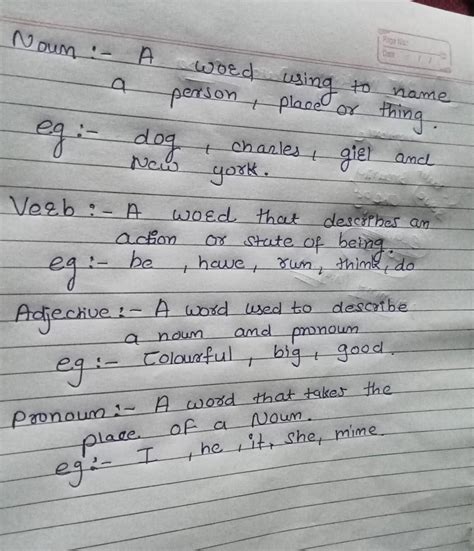 Noun :- A woed using to name
a person, place or thing.
eg :- dog, charles, giel and
New york.
Veeb :- A woed that describes an
action or state of being.
eg :- be, have, run, think, do
Adjective :- A word used to describe
a noun and pronoun
eg :- Colourful, big, good.
Pronoun :- A word that takes the
place of a Noun.
eg :- I, he, it, she, mime.